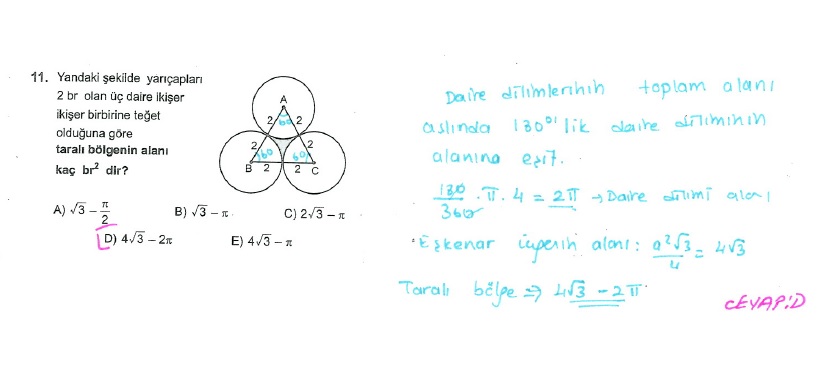 11. Yandaki şekilde yarıçapları
2 br olan üç daire ikişer
ikişer birbirine teğet
olduğuna göre
taralı bölgenin alanı
kaç br² dir?
A
60
2 2
2 2
60 60
B 2 2 C
A) √3 − π/2 B) √3 − π C) 2√3 − π
D) 4√3 − 2π E) 4√3 − π
Daire dilimlerinin toplam alanı
aslında 180° lik daire diliminin
alanına eşit.
180/360 . π . 4 = 2π → Daire dilimi alanı
Eşkenar üçgenin alanı: a²√3/4 = 4√3
Taralı bölge ⇒ 4√3 − 2π
CEVAP: D